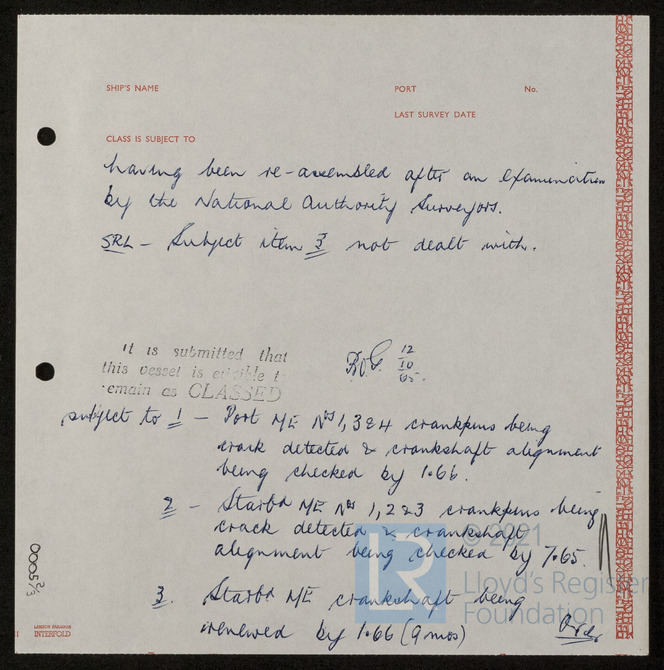 SHIP'S NAME PORT No.
LAST SURVEY DATE
CLASS IS SUBJECT TO
having been re-assembled after an examination
by the National Authority Surveyors.
SRL - Subject item 3 not dealt with.
It is submitted that
this vessel is eligible t
remain as CLASSED
12
10
65.
subject to 1 - Port M/E Nos 1, 3 & 4 crankpins being
crack detected & crankshaft alignment
being checked by 1.66.
2 - Starbd M/E Nos 1, 2 & 3 crankpins being
crack detected & crankshaft
alignment being checked by 7.65.
3. Starbd M/E crankshaft being
renewed by 1.66 (9 mos)
© 2021
LR
Lloyd's Register
Foundation
0005
LAMSON PARAGON
INTERFOLD